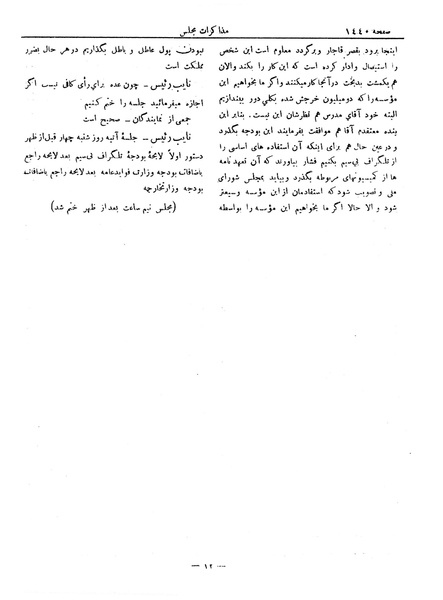 صفحه ۱۴۴۰
مذاکرات مجلس
اینجا برود بقصر قاجار و برگردد معلوم است این شخص
را استیصال وادار کرده است که این کار را بکند والان
هم یکمشت بدبخت در آنجا کار میکنند و اگر ما بخواهیم این
مؤسسه را که دو میلیون خرجش شده بکلی دور بیندازیم
البته خود آقای مدرس هم نظرشان این نیست. بنابر این
بنده معتقدم آقا هم موافقت بفرمایند این بودجه بگذرد
و در عین حال هم برای اینکه آن استفاده های اساسی را
از تلگراف بی‌سیم بکنیم فشار بیاورند که آن تعهدنامه
ها از کمیسیونهای مربوطه بگذرد و بیاید بمجلس شورای
ملی و تصویب شود که استفادمان از این مؤسسه وسیعتر
شود و الا حالا اگر ما بخواهیم این مؤسسه را بواسطه
نبودن پول عاطل و باطل بگذاریم در هر حال بضرر
مملکت است
نایب رئیس - چون عده برای رأی کافی نیست اگر
اجازه میفرمائید جلسه را ختم کنیم
جمعی از نمایندگان - صحیح است
نایب رئیس - جلسهٔ آتیه روز شنبه چهار قبل از ظهر
دستور اولاً لایحهٔ بودجهٔ تلگراف بی‌سیم بعد لایحه راجع
باضافات بودجه وزارت فوایدعامه بعد لایحه راجع باضافات
بودجه وزارتخارجه
(مجلس نیم ساعت بعد از ظهر ختم شد)
— ۱۲ —